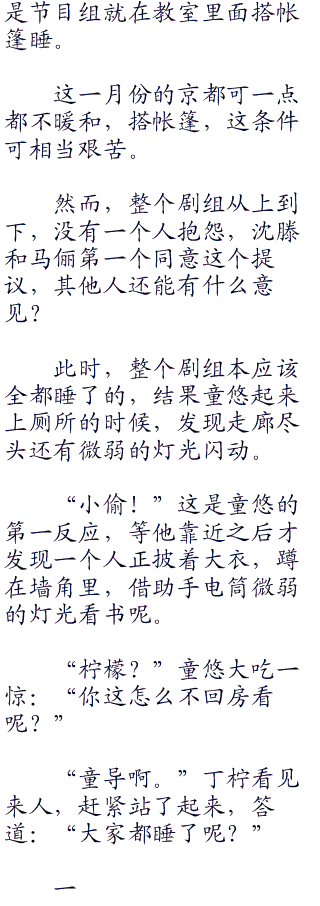 是节目组就在教室里面搭帐
篷睡。
这一月份的京都可一点
都不暖和，搭帐篷，这条件
可相当艰苦。
然而，整个剧组从上到
下，没有一个人抱怨，沈滕
和马俪第一个同意这个提
议，其他人还能有什么意
见？
此时，整个剧组本应该
全都睡了的，结果童悠起来
上厕所的时候，发现走廊尽
头还有微弱的灯光闪动。
“小偷！”这是童悠的
第一反应，等他靠近之后才
发现一个人正披着大衣，蹲
在墙角里，借助手电筒微弱
的灯光看书呢。
“柠檬？”童悠大吃一
惊：“你这怎么不回房看
呢？”
“童导啊。”丁柠看见
来人，赶紧站了起来，答
道：“大家都睡了呢？”
一